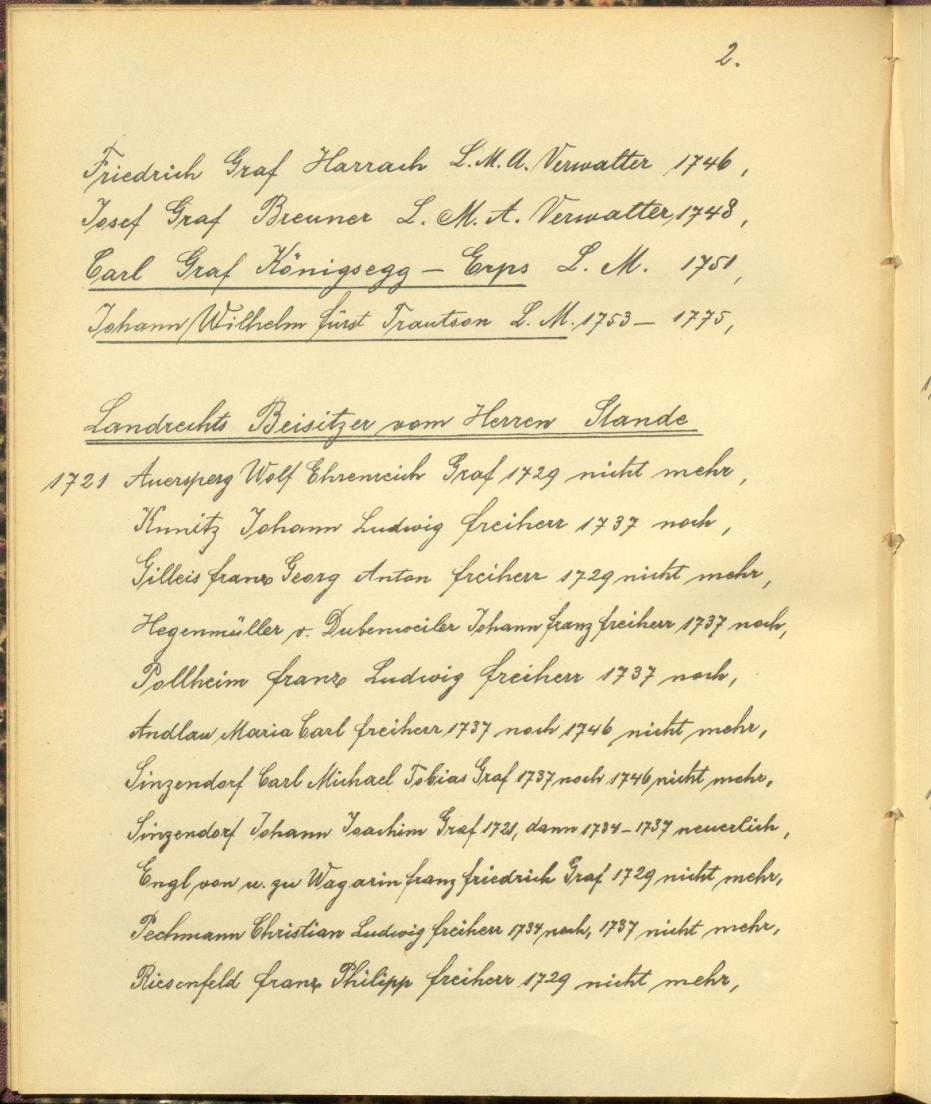 2.
Friedrich Graf Harrach L.M.A. Verwalter 1746,
Josef Graf Breuner L. M. A. Verwalter, 1748,
Carl Graf Königsegg – Erps L. M. 1751,
Johann Wilhelm fürst Trautson L. M. 1753 – 1775,
Landrechts Beisitzer vom Herren Stande
1721 Auersperg Wolf Ehrenreich Graf 1729 nicht mehr,
Kunitz Johann Ludwig freiherr 1737 noch,
Gilleis franz Georg Anton freiherr 1729 nicht mehr,
Hegenmüller v. Dubenweiler Johann franz freiherr 1737 noch,
Pollheim franz Ludwig freiherr 1737 noch,
Andlau Maria Carl freiherr 1737 noch 1746 nicht mehr,
Sinzendorf Carl Michael Tobias Graf 1737 noch 1746 nicht mehr,
Sinzendorf Johann Joachim Graf 1721, dann 1734–1737 neuerlich,
Engl von u. zu Wagarin franz friedrich Graf 1729 nicht mehr,
Pechmann Christian Ludwig freiherr 1734 noch, 1737 nicht mehr,
Riesenfeld franz Philipp freiherr 1729 nicht mehr,